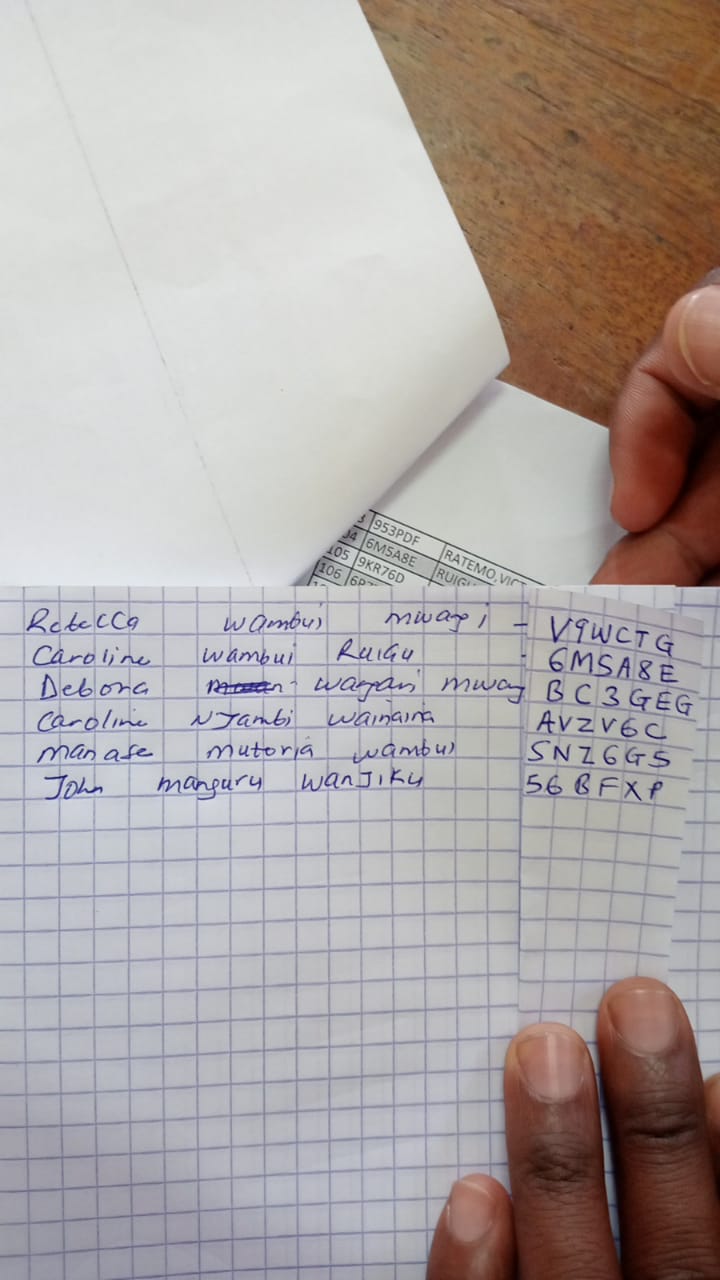 3 953PDF RATEMO,VICT
04 6M5A8E RUIGU
105 9KR76D
106
Rebecca wambui mwagi - V9WCTG
Caroline wambui Ruigu - 6M5A8E
Debora wagari mway BC3GEG
Caroline NJambi wainaina AVZV6C
manase mutoria wambui SNZ6G5
John manguru wanJiku 56BFXP